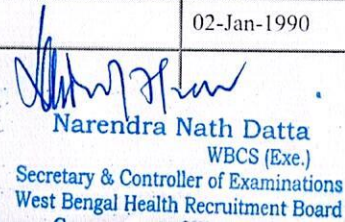 02-Jan-1990
Narendra Nath Datta
WBCS (Exe.)
Secretary & Controller of Examinations
West Bengal Health Recruitment Board